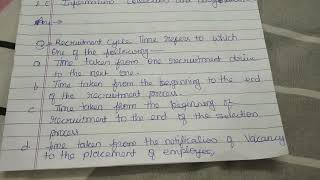 2.C Information Collection and
Ans →
Q = Recruitment Cycle Time refers to which
one of the following —
a Time taken from one recruitment drive
to the next one.
b Time taken from the beginning to the end
of the recruitment process.
c Time taken from the beginning of
recruitment to the end of the selection
process
d time taken from the notification of vacancy
to the placement of employees,